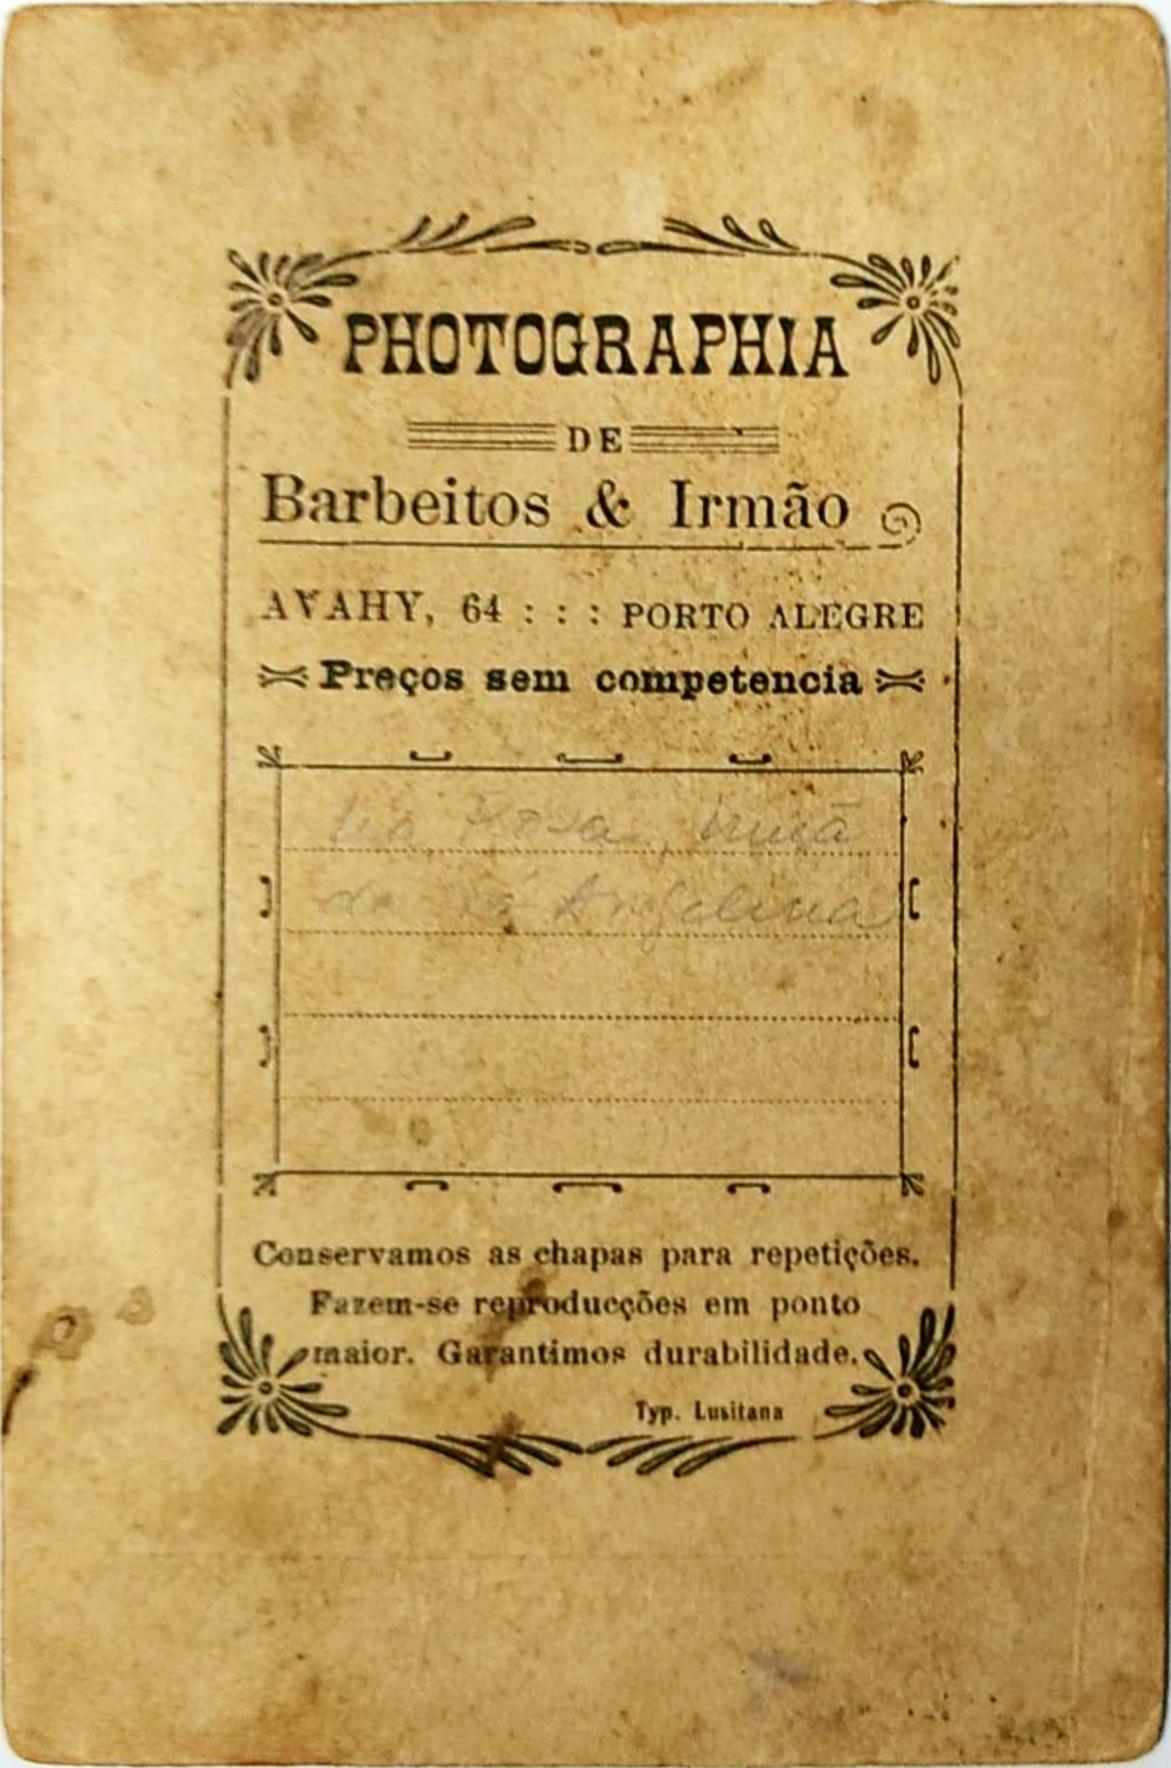 PHOTOGRAPHIA
DE
Barbeitos & Irmão
AVAHY, 64 : : : PORTO ALEGRE
Preços sem competencia
Rosa, irmã
da Angelina
Conservamos as chapas para repetições.
Fazem-se reproducções em ponto
maior. Garantimos durabilidade.
Typ. Lusitana